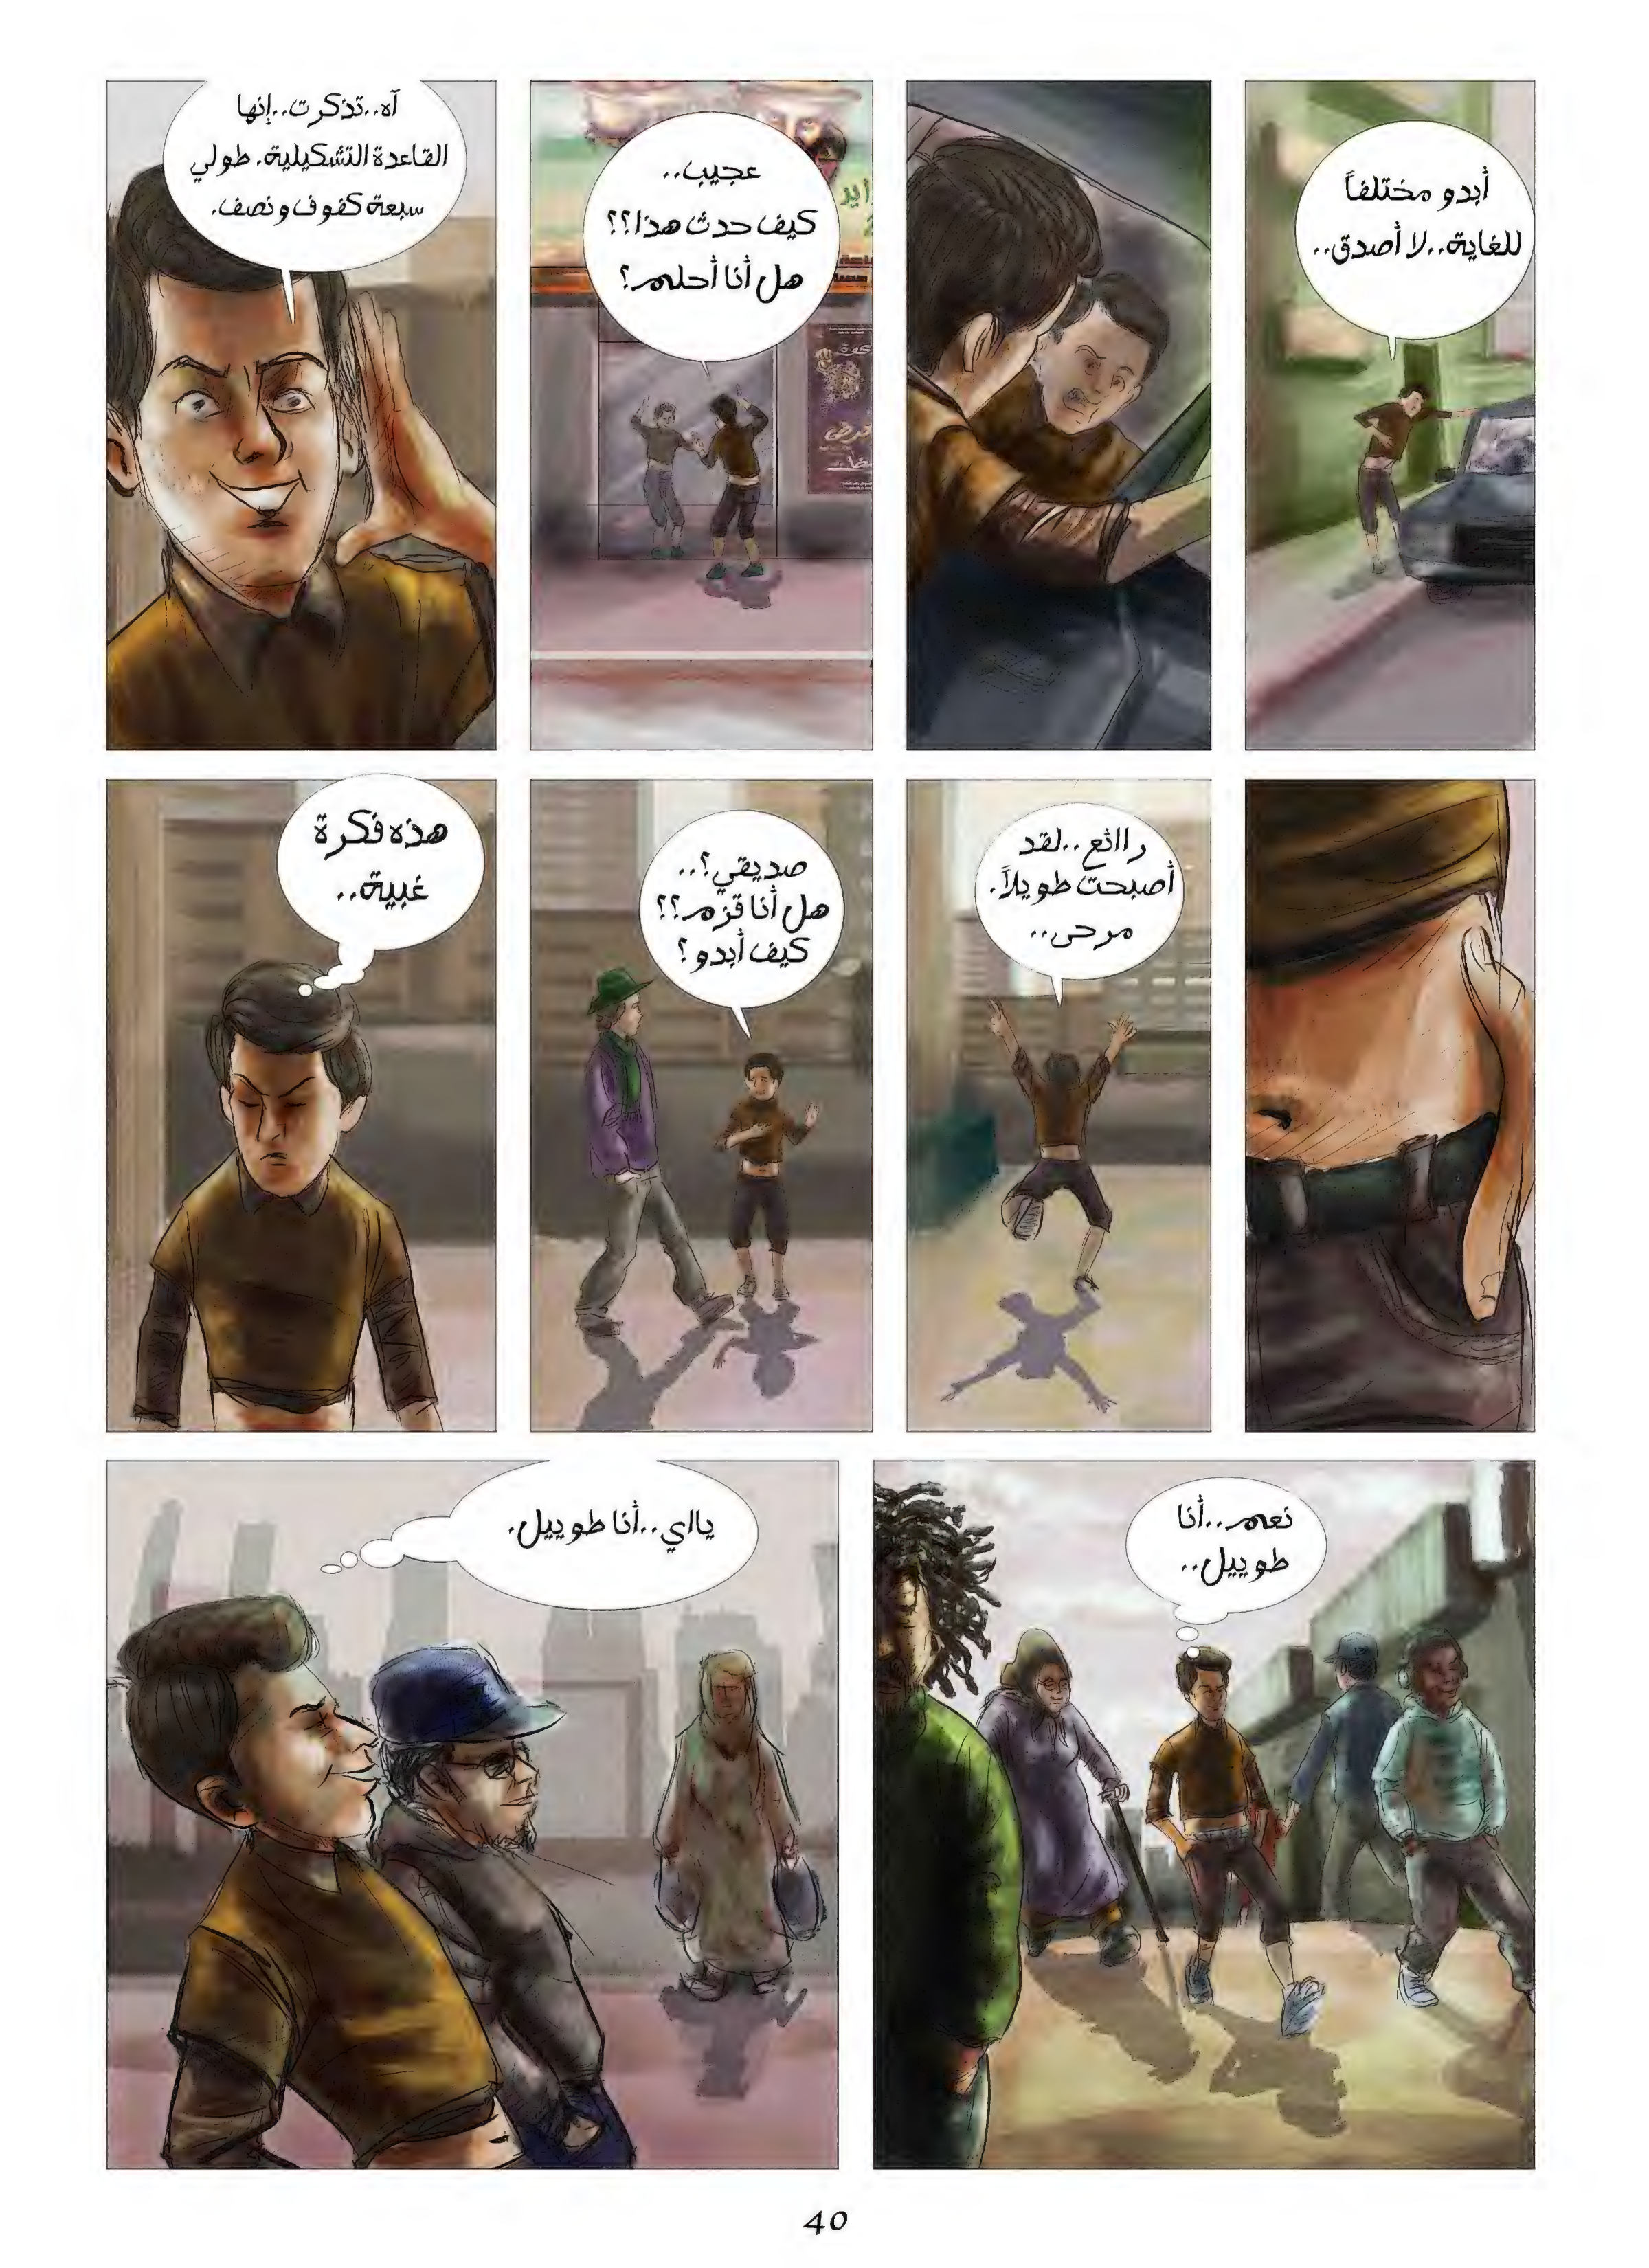 أبدو مختلفاً
للغاية..لا أصدق..
عجيب..
كيف حدث هذا؟؟
هل أنا أحلم؟
آه..تذكرت..إنها
القاعدة التشكيلية. طولي
سبعة كفوف ونصف.
راائع..لقد
أصبحت طويلاً.
مرحى..
صديقي؟..
هل أنا قزم؟؟
كيف أبدو؟
هذه فكرة
غبية..
نعم..أنا
طوييل..
يااي..أنا طوييل.
40